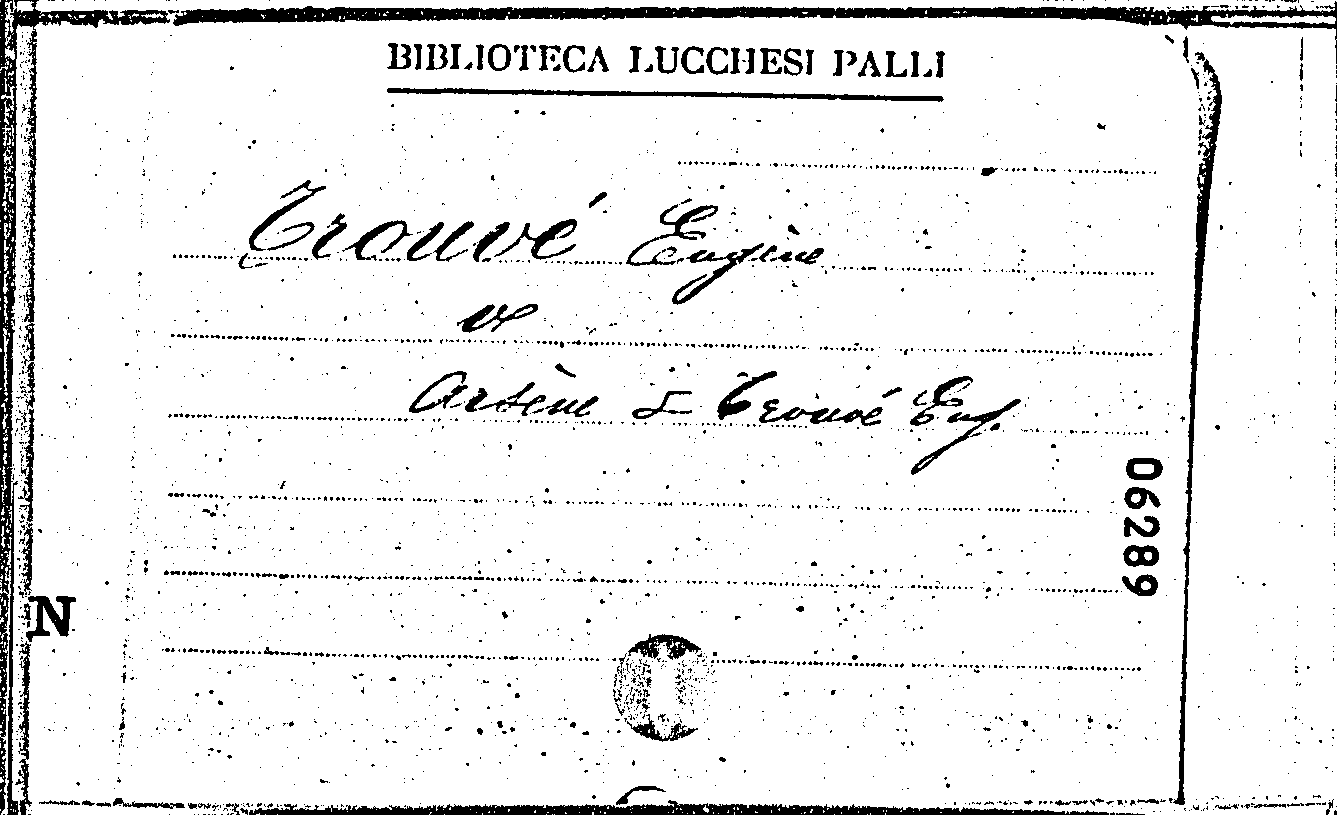 BIBLIOTECA LUCCHESI PALLI
Trouvé Eugène
Arsène & Trouvé Eug.
06289
N